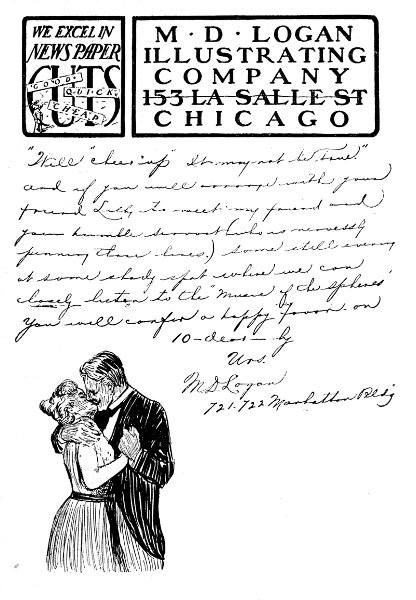 WE EXCEL IN
NEWS PAPER
CUTS
GOOD
QUICK
CHEAP
M · D · LOGAN
ILLUSTRATING
COMPANY
153 LA SALLE ST
CHICAGO
"Well "cheer up" It may not be True."
and if you will arrange with your
friend to meet my friend and
your humble servant (who is nervously
penning these lines.) some still evening
at some shady spot where we can
closely listen to the "Music of the Spheres"
You will confer a happy favor on
10-dear-ly
Urs.
MD Logan
721-722 Manhattan Bldg